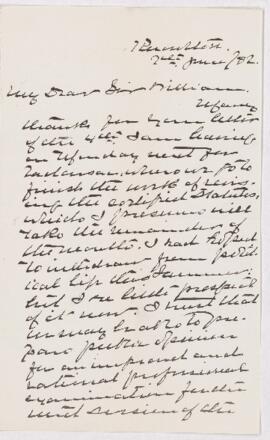 7th June /02.
My Dear Sir William,
Many
thanks for your letter
of the 4th. I am leaving
on Monday next for
where we go to
finish the work of revis-
ing the certified Statutes,
which I presume will
take the remainder of
the month. I had hoped
to withdraw from polit-
ical life this Summer,
but I see little prospect
of it now. I trust that
we may be able to pre-
pare public opinion
for an improved and
national professional
examination for the
next session of the